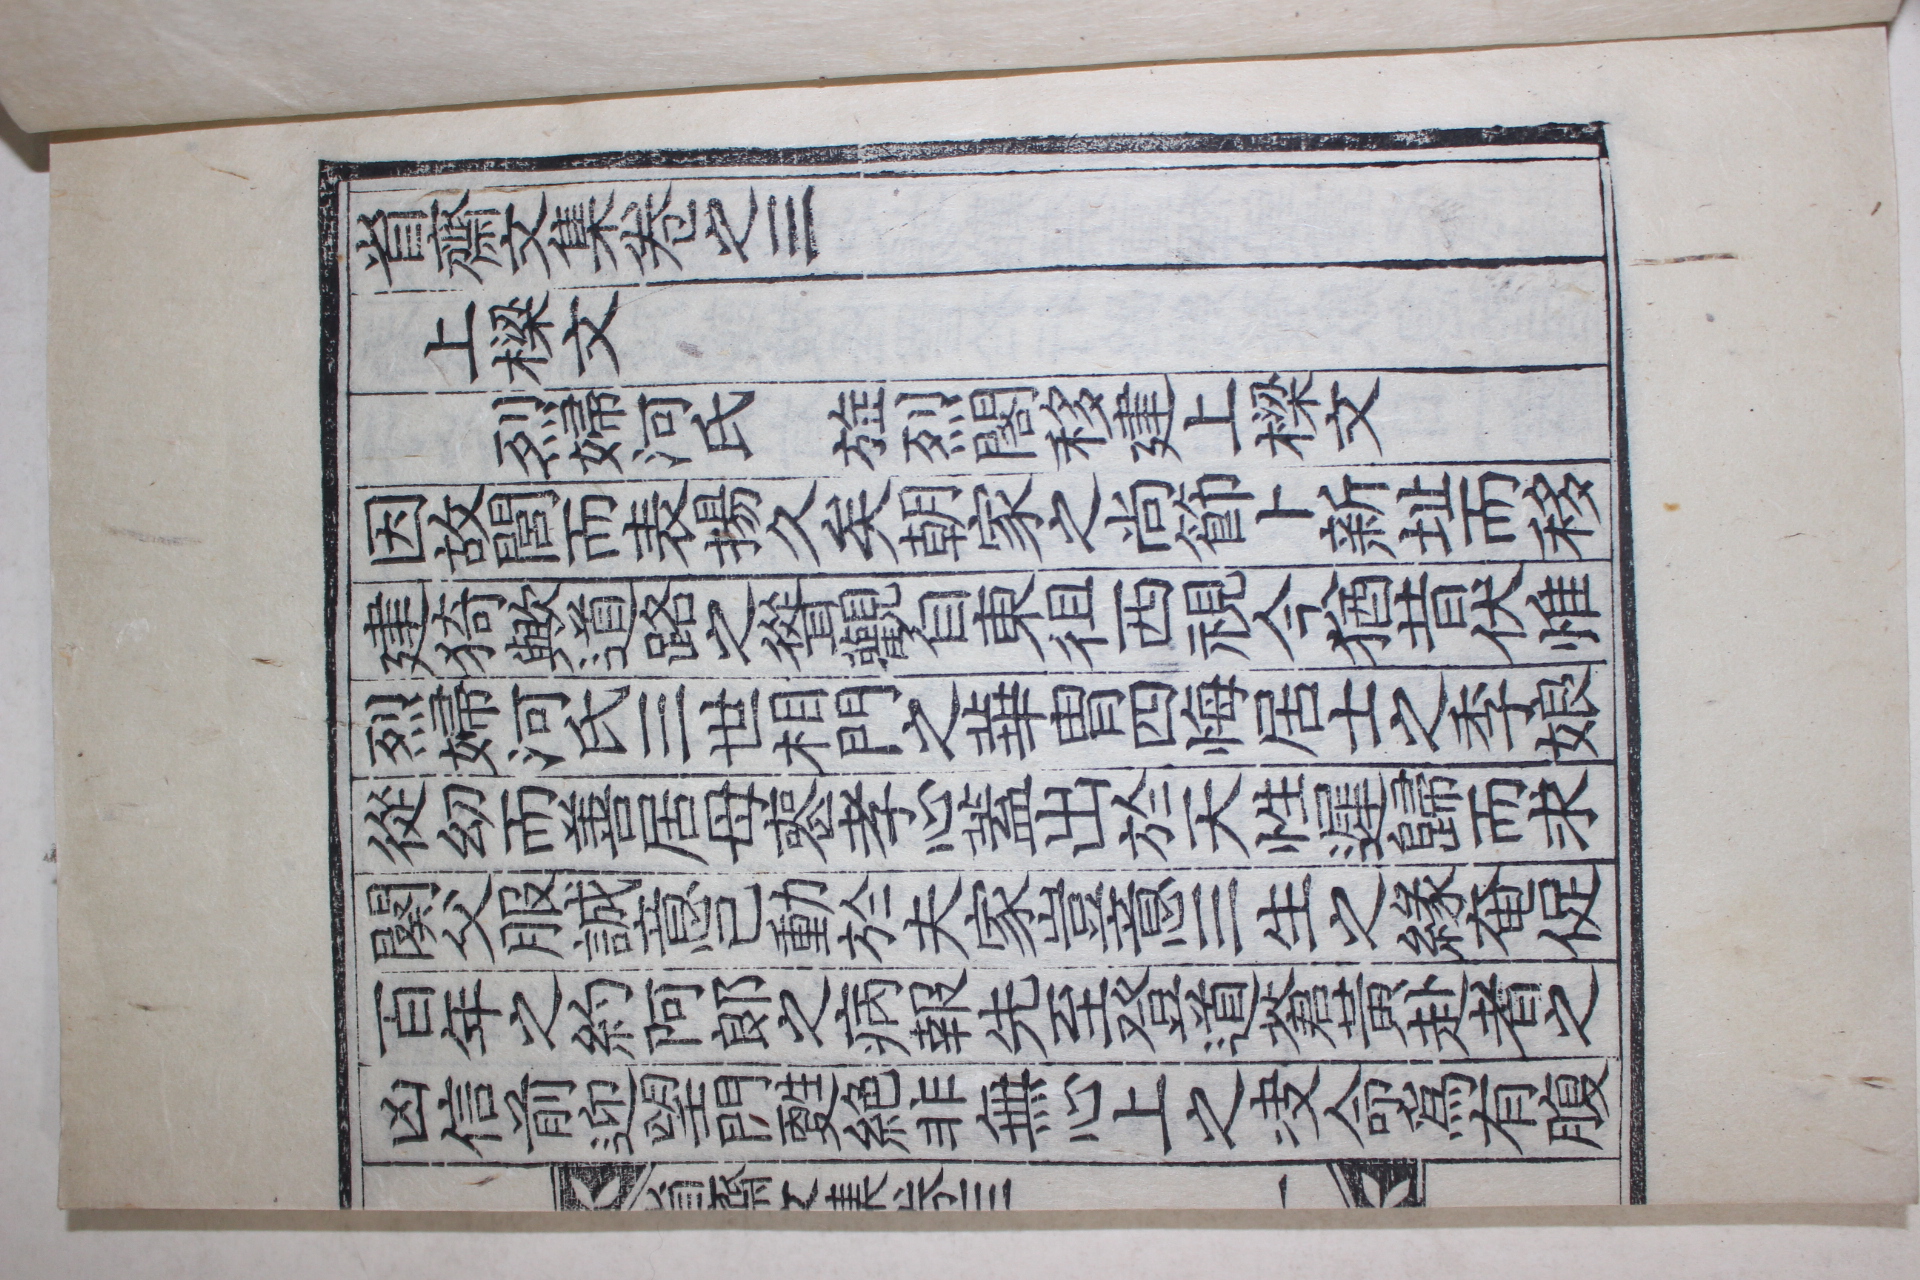 省齋文集卷之三
上樑文
烈婦河氏 旌烈閣移建上樑文
因故閭而表揚久矣朝家之尚節卜新址而移
建猗歟道路之聳觀自東徂西視今猶昔伏惟
烈婦河氏三世相門之華冑四悔居士之季娘
從幼而善居母孝心盖出於天性遲歸而未
闋父服誠意已動於夫家豈意三生之緣奄促
百年之約阿郎之病報先至發道蒼黃赴者之
凶信前迎望門絶非無心上之决命爲有腹
省齋文集卷三 一